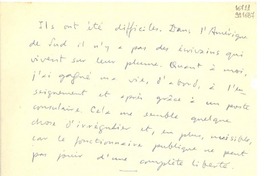 Ils ont été difficiles. Dans l'Amérique
de Sud il n'y a pas des écrivains qui
vivent sur leur plume. Quant à moi,
j'ai gagné ma vie, d'abord, à l'en
seignement et après grâce à un poste
consulaire. Cela me semble quelque
chose d'irrégulier et, en plus, nuisible,
car le fonctionnaire publique ne peut
pas jouir d'une complète liberté.